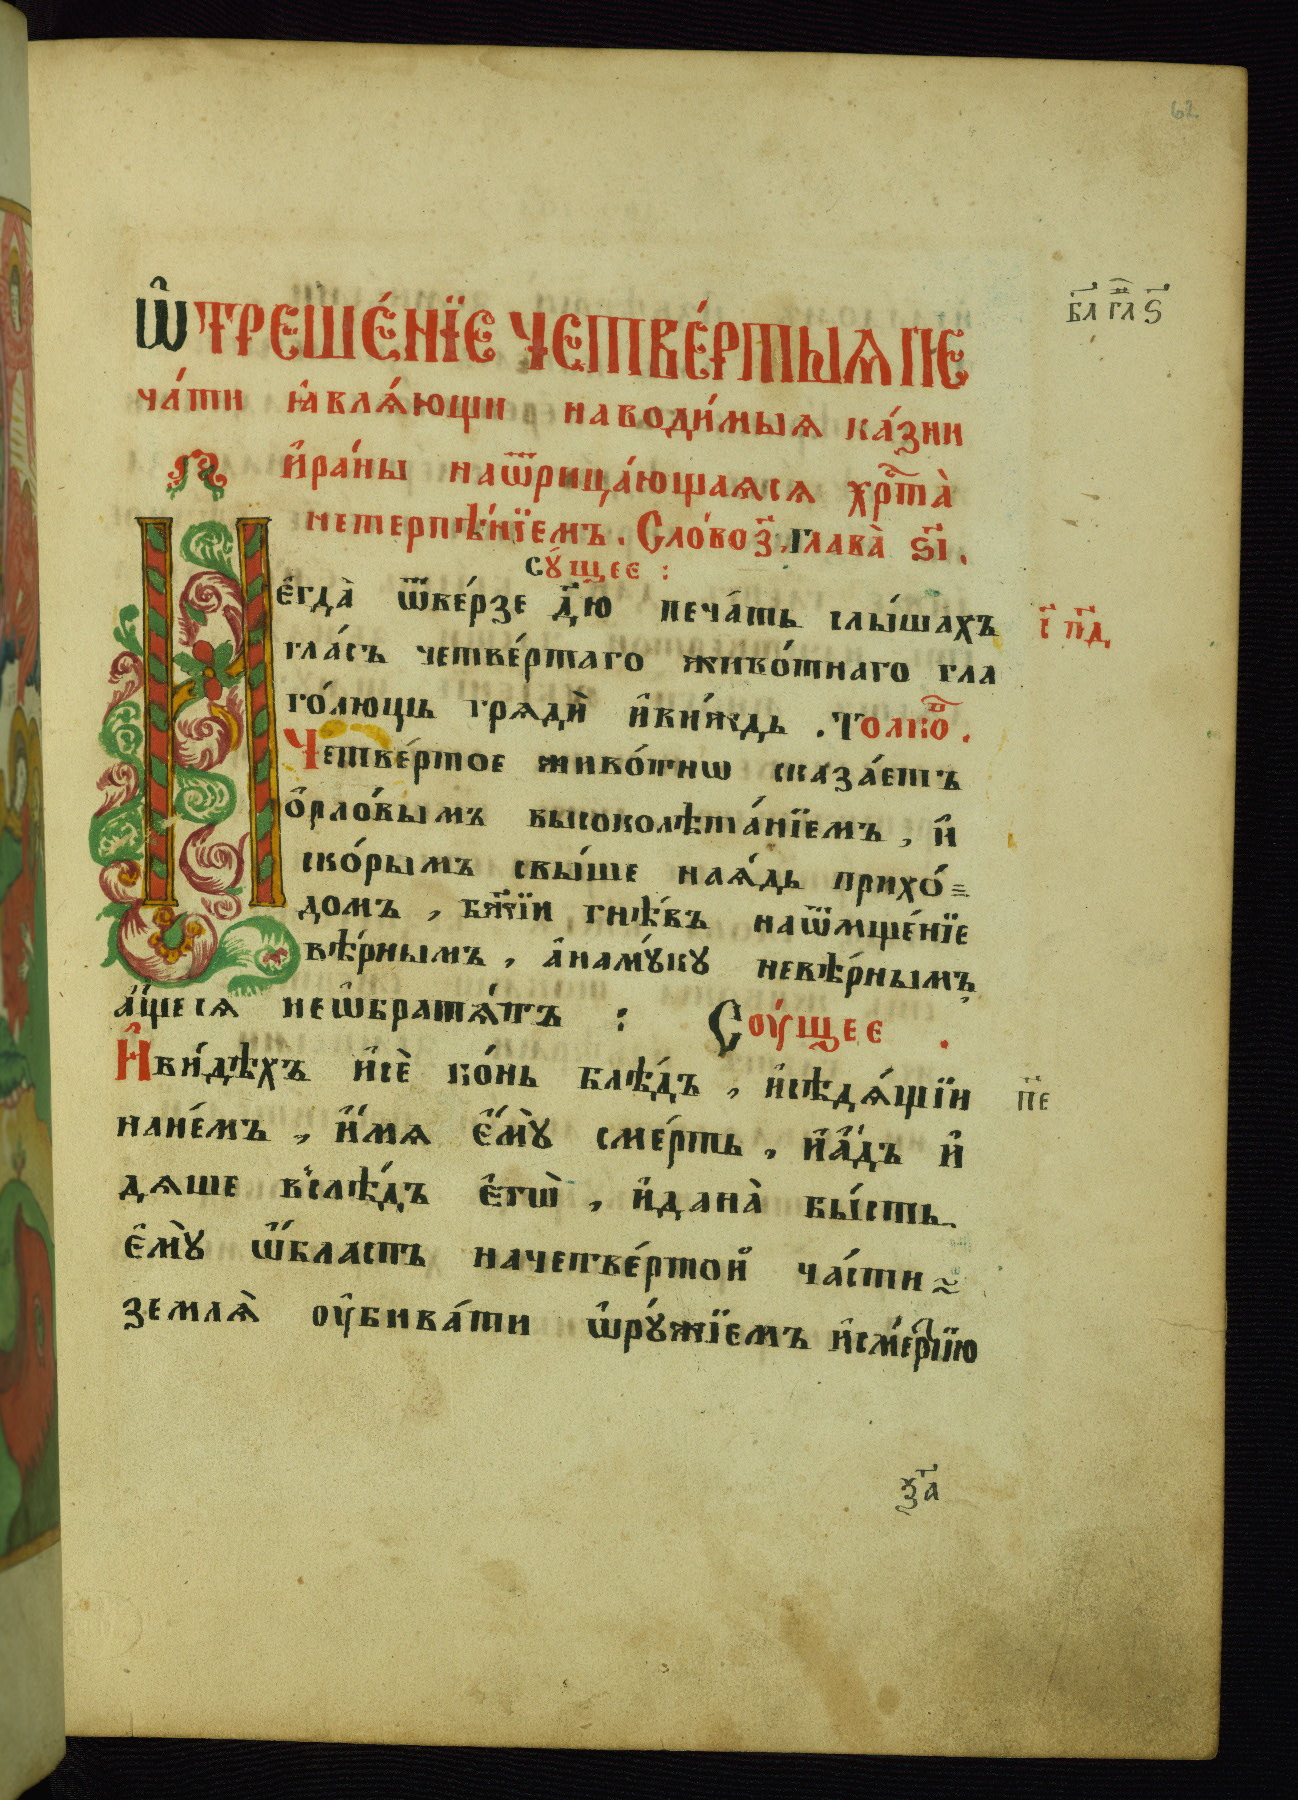 62
Ѡ҆трєшє́нїє четвє́ртыѧ пє
ча́ти ꙗ҆влѧ́ющи наводи́мыѧ ка́зни
и҆ра́ны наѿрица́ющаѧсѧ хрⷭ҇та̀
нетерпѣ́нїемъ. Сло́во з҃, глава̀ ѕ҃і.
су́щее :
бл҃ гл҃ ѕ҃
И є҆гда̀ ѿве́рзе д҃ю печа́ть слы́шахъ
гла́съ четве́ртаго живо́тнаго гла
го́лющь грѧдѝ и҆ви́ждь . Толко́ .
Четве́ртое живо́тнѡ сказа́етъ
ѻ҆рло́вымъ высоколѣта́нїемъ, и҆
ско́рымъ свы́ше наѧ́дь прихо́=
домъ, бж҃їи гнѣ́въ наѿмще́нїе
вѣ́рнымъ, а҆наму́ку невѣ́рнымъ,
а҆́щесѧ неѡ҆братѧ́тъ : Сꙋ́щее .
И҆ви́дѣхъ и҆сѐ ко́нь блѣ́дъ, и҆сѣдѧ́щїи
п҃е
нане́мъ, и҆́мѧ є҆мꙋ̀ сме́рть, и҆а҆́дъ и҆
дѧше вслѣ́дъ є҆гѡ̀, и҆дана̀ бы́сть
є҆мꙋ̀ ѡ҆́бласть начетве́ртой ча́сти
землѧ̀ ѹ҆бива́ти ѡ҆рꙋ́жїемъ и҆сме́ртїю
ѯ҃а